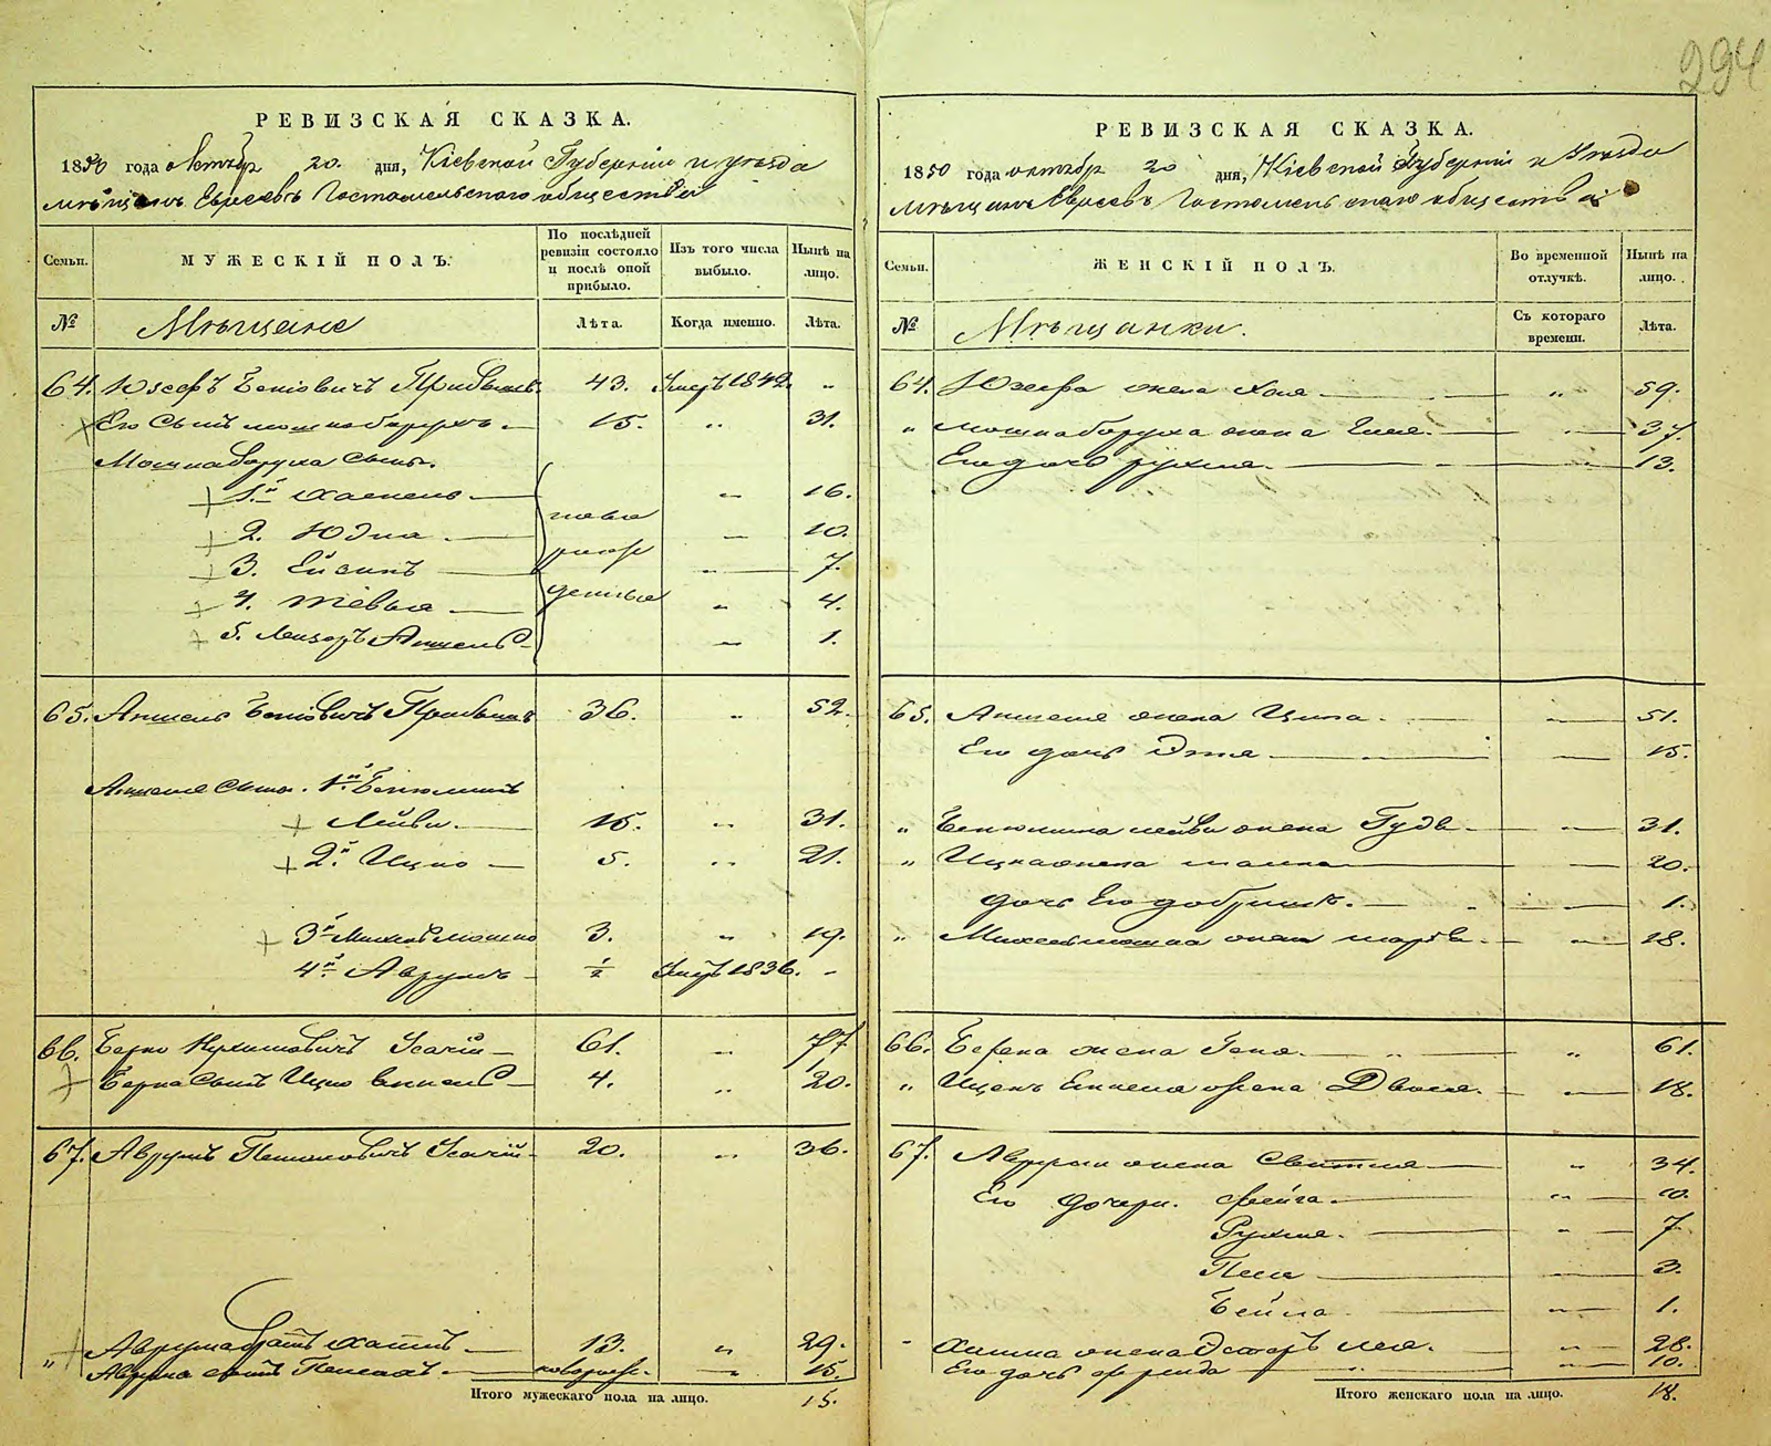 294
РЕВИЗСКАЯ СКАЗКА.
1850 года октября 20. дня, Кіевской Губерніи и уезда
мѣщанъ Евреевъ Гостомельскаго общества
Семьи.
МУЖЕСКІЙ ПОЛЪ.
По послѣдней ревизіи состояло и послѣ оной прибыло.
Изъ того числа выбыло.
Нынѣ на лицо.
№
Мѣщане
Лѣта.
Когда именно.
Лѣта.
64. Юзефъ Беніовичъ 43. Умеръ 1842. "
Его Сынъ Мошкаборухъ 15. " 31.
Мошкаборуха Сыны.
1й Хаскель " 16.
2. Юдка 10.
3. Ейзикъ " 7.
4. Тевье " 4.
5. Лейзоръ Аншель 1.
ново рож денные
65. Аншель Беніовичъ 36. " 52.
Аншеля Сыны. 1й Беніоминъ
Лейви. 15. " 31.
2й Ицко 5. " 21.
3й Михель Мошко 3. " 19.
4й Аврумъ ½ Умеръ 1836. -
66. Берко Нухимовичъ 61. " 77
Берка Сынъ Ицко 4. " 20.
67. Аврумъ 20. " 36.
" Аврума братъ Хаимъ 13. " 29.
Аврума сынъ Пейсахъ новорож. " 15.
Итого мужескаго пола на лицо. 15.
РЕВИЗСКАЯ СКАЗКА.
1850 года октября 20 дня, Кіевской Губерніи и Уезда
Мѣщанъ Евреевъ Гостомельскаго общества
Семьи.
ЖЕНСКІЙ ПОЛЪ.
Во временной отлучкѣ.
Нынѣ на лицо.
№
Мѣщанки.
Съ котораго времени.
Лѣта.
64. Юзефа жена Хая " 59.
" Мошкаборуха жена 37.
Его дочь Рухля. 13.
65. Аншеля жена Ципа. 51.
Его дочь Этя 15.
" Беніомина лейви жена 31.
" Ицка жена 20.
дочь Его 1.
" Михель мошка жена 18.
66. Берка жена Геня. " 61.
" жена Двойя. 18.
67. Аврума жена " 34.
Его дочери. Фейга. " 10.
Рухля. " 7
Песя 3.
Бейла. " 1.
- Хаима жена Эстеръ лея. " 28.
Его дочь Фрейда " 10.
Итого женскаго пола на лицо. 18.